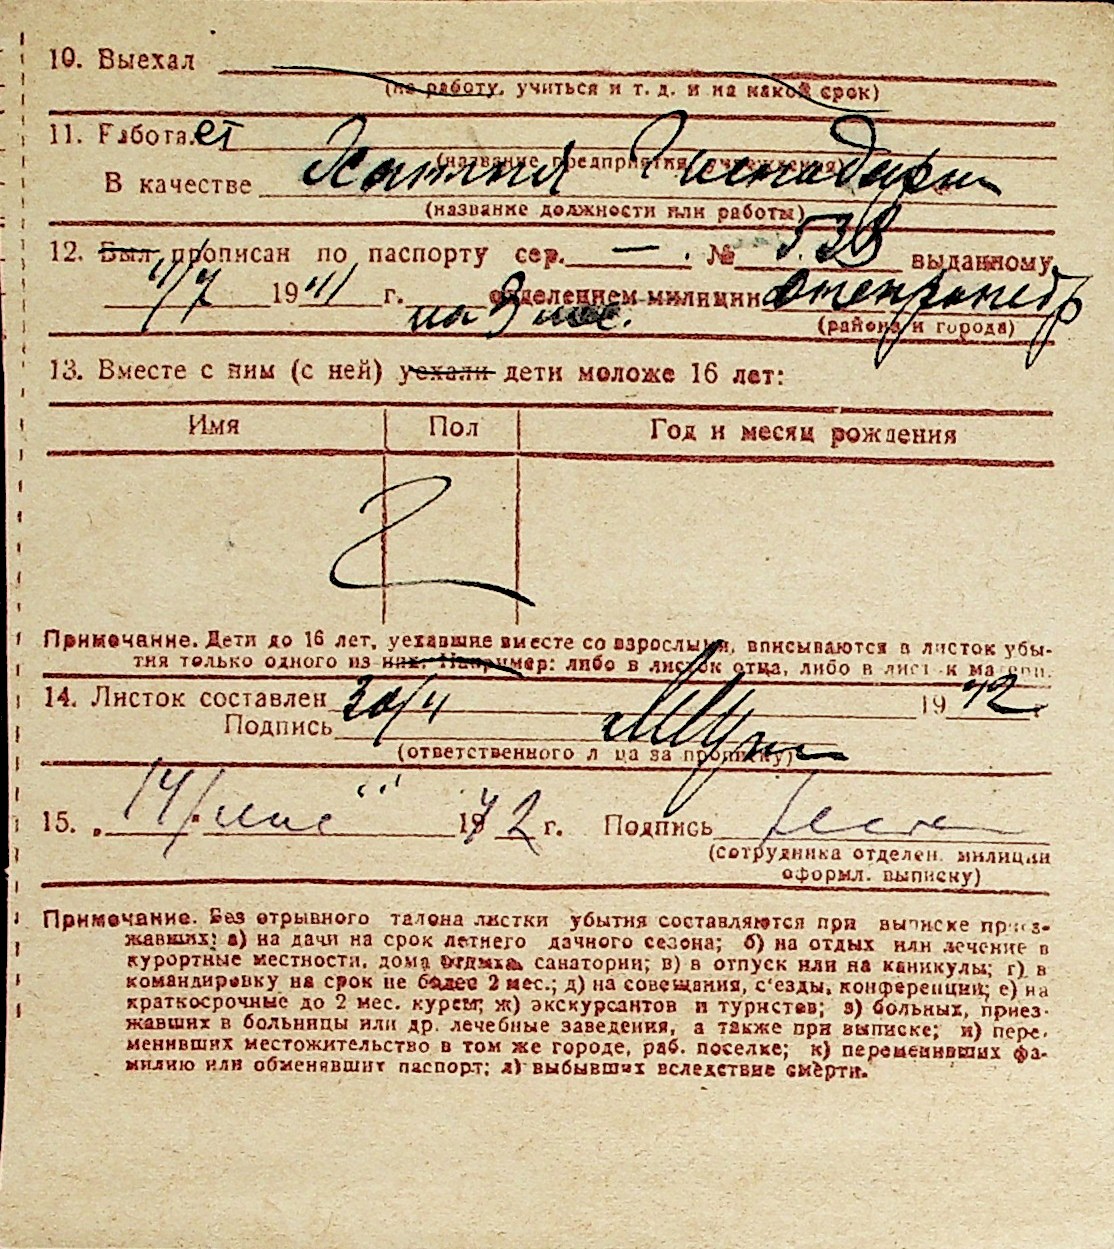 10. Выехал
(на работу, учиться и т. д. и на какой срок)
11. Работает
(название предприятия, учреждения)
В качестве
(название должности или работы)
12. Был прописан по паспорту сер. — . № 533 выданному
11/7 1941 г. отделением милиции
на 3 мес.
(района и города)
13. Вместе с ним (с ней) уехали дети моложе 16 лет:
Имя Пол Год и месяц рождения
Примечание. Дети до 16 лет, уехавшие вместе со взрослыми, вписываются в листок убы-
тия только одного из них. Например: либо в листок отца, либо в листок матери.
14. Листок составлен 30/4 1942
Подпись
(ответственного лица за прописку)
15. „14/ мая 1942 г. Подпись
(сотрудника отделен. милиции
оформл. выписку)
Примечание. Без отрывного талона листки убытия составляются при выписке приез-
жавших: а) на дачи на срок летнего дачного сезона; б) на отдых или лечение в
курортные местности, дома отдыха, санатории; в) в отпуск или на каникулы; г) в
командировку на срок не более 2 мес.; д) на совещания, с'езды, конференции; е) на
краткосрочные до 2 мес. курсы; ж) экскурсантов и туристов; з) больных, приез-
жавших в больницы или др. лечебные заведения, а также при выписке; и) пере-
менивших местожительство в том же городе, раб. поселке; к) переменивших фа-
милию или обменявшит паспорт; л) выбывших вследствие смерти.